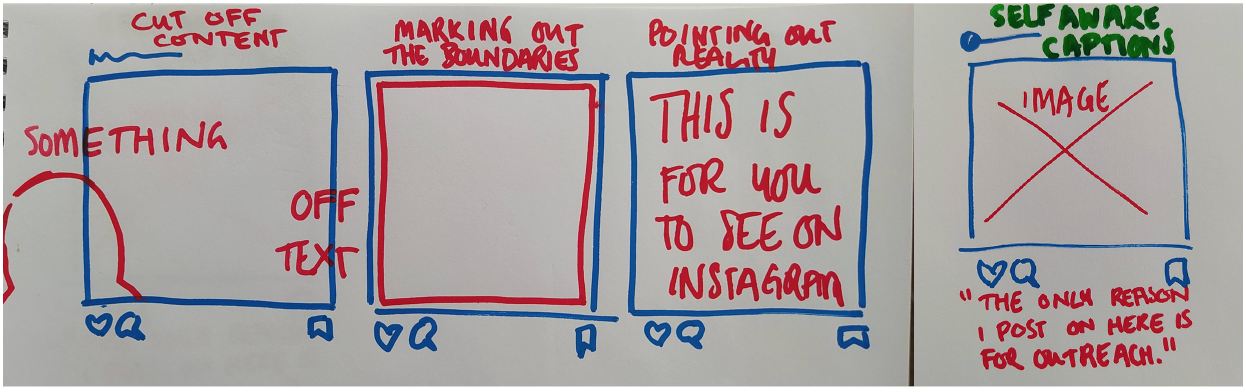 CUT OFF
CONTENT
SOMETHING
OFF
TEXT
MARKING OUT
THE BOUNDARIES
POINTING OUT
REALITY
THIS IS
FOR YOU
TO SEE ON
INSTAGRAM
SELF AWARE
CAPTIONS
IMAGE
"THE ONLY REASON
I POST ON HERE IS
FOR OUTREACH."